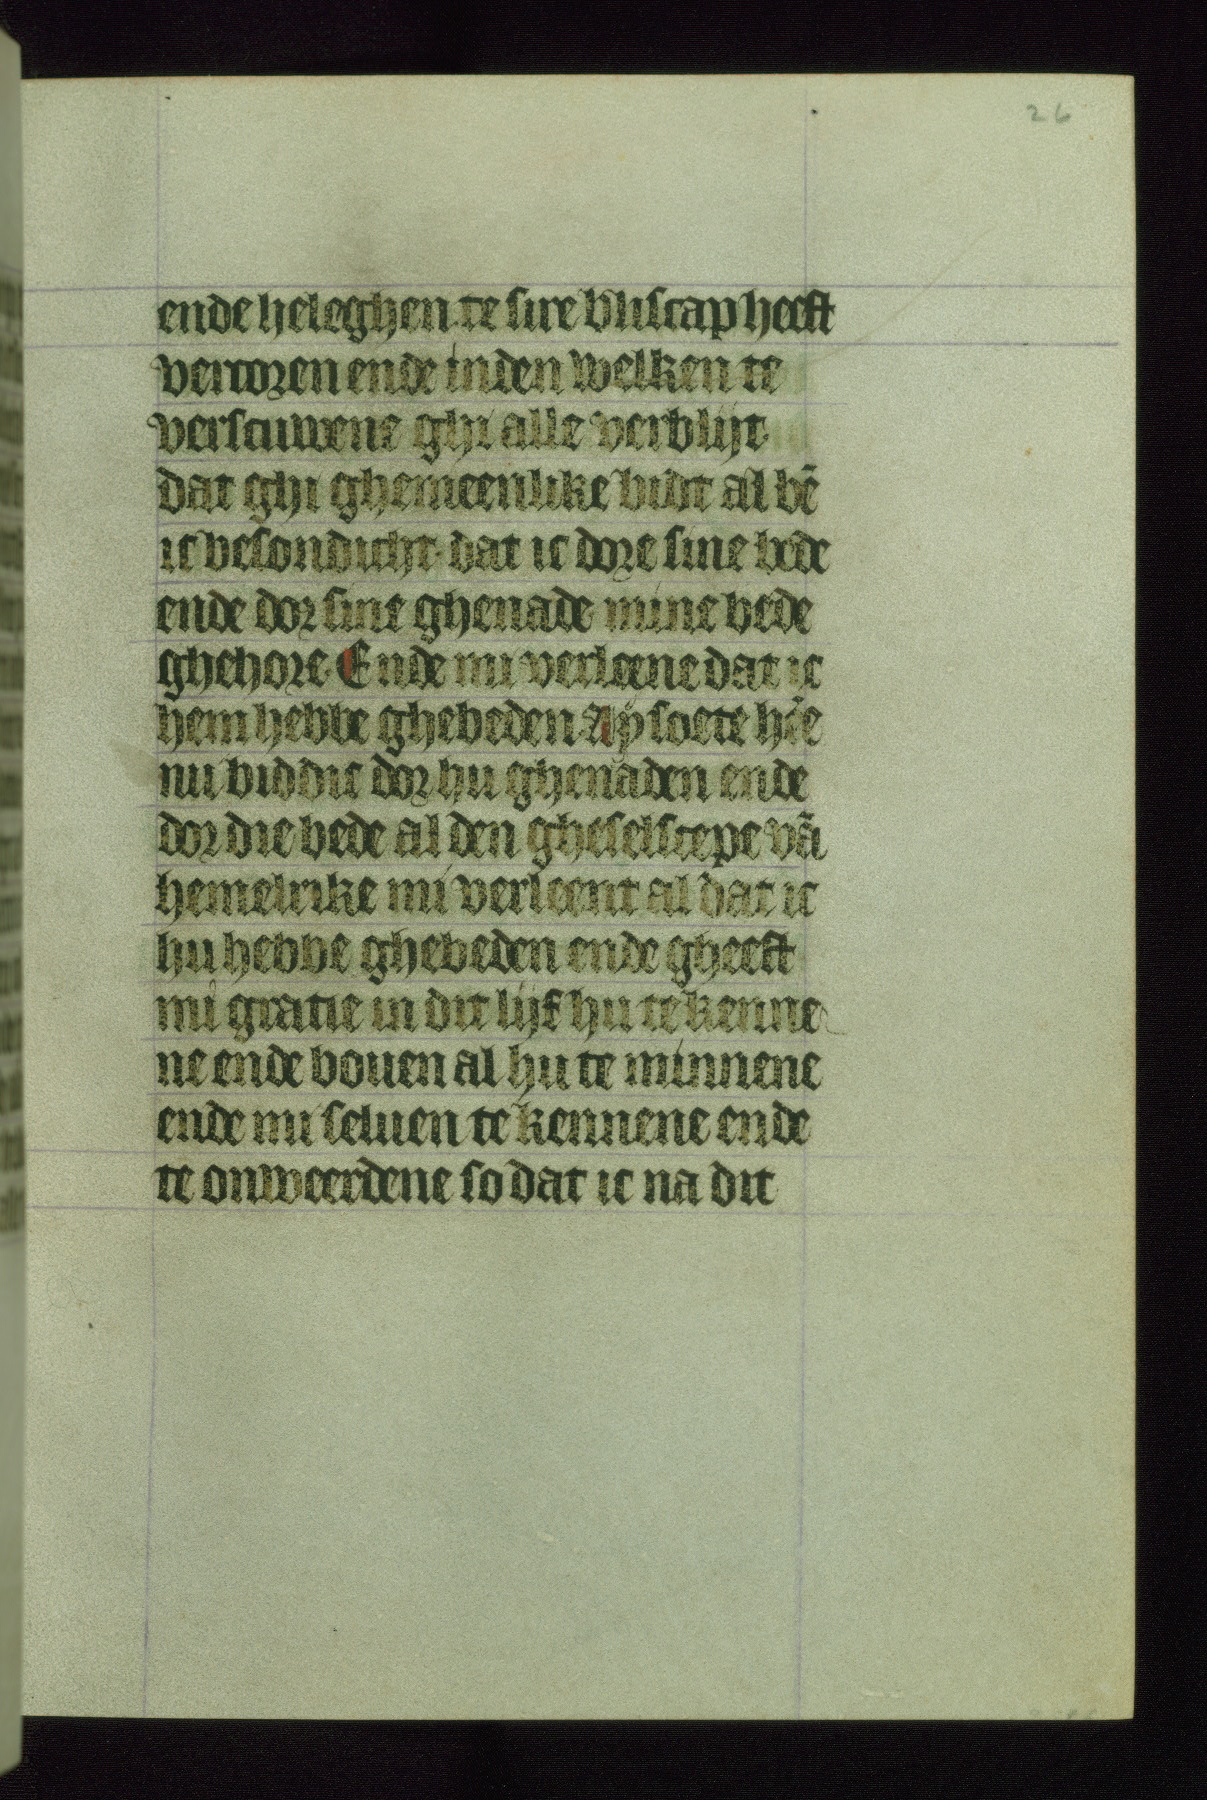 26
ende heleghen te sire bliscap heeft
vercoren ende in den welken te
verscuwene ghi alle verblijt
dat ghi ghemeenlike bidt al bē
ic besondicht· dat ic dore sine bede
ende dor sine ghenade mine bede
ghehore· Ende mi verleene dat ic
hem hebbe ghebeden Ay soete hr̄e
nu bid dic dor hu ghenaden ende
dor die bede al den gheselscepe vā
hemelrike mi verleent al dat ic
hu hebbe ghebeden ende gheeft
mi gratie in dit lijf hu te kenne
ne ende bouen al hu te minnene
ende mi seluen te kennene ende
te onweerdene so dat ic na dit